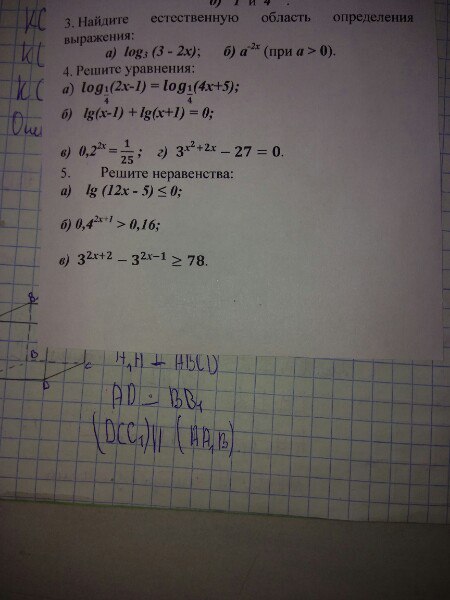 б) 1 и 4
КС
3. Найдите естественную область определения
выражения:
а) log₃ (3 - 2x); б) a⁻²ˣ (при a > 0).
4. Решите уравнения:
а) log_{1/4}(2x-1) = log_{1/4}(4x+5);
б) lg(x-1) + lg(x+1) = 0;
в) 0,2^{2x} = 1/25 ; г) 3^{x²+2x} − 27 = 0.
5. Решите неравенства:
а) lg (12x - 5) ≤ 0;
б) 0,4^{2x+1} > 0,16;
в) 3^{2x+2} − 3^{2x−1} ≥ 78.
ABCD
AD ∸ BB₁
(DCC₁) || (AA₁B)